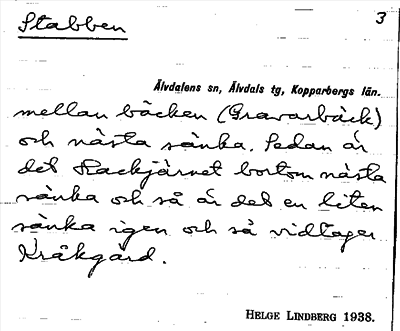 Stabben
3
Älvdalens sn, Älvdals tg, Kopparbergs län.
mellan bäcken (Gravarbäck)
och nästa sänka. Sedan är
det Rackjärnet bortom nästa
sänka och så är det en liten
sänka igen och så vidtager
Kråkgård.
HELGE LINDBERG 1938.